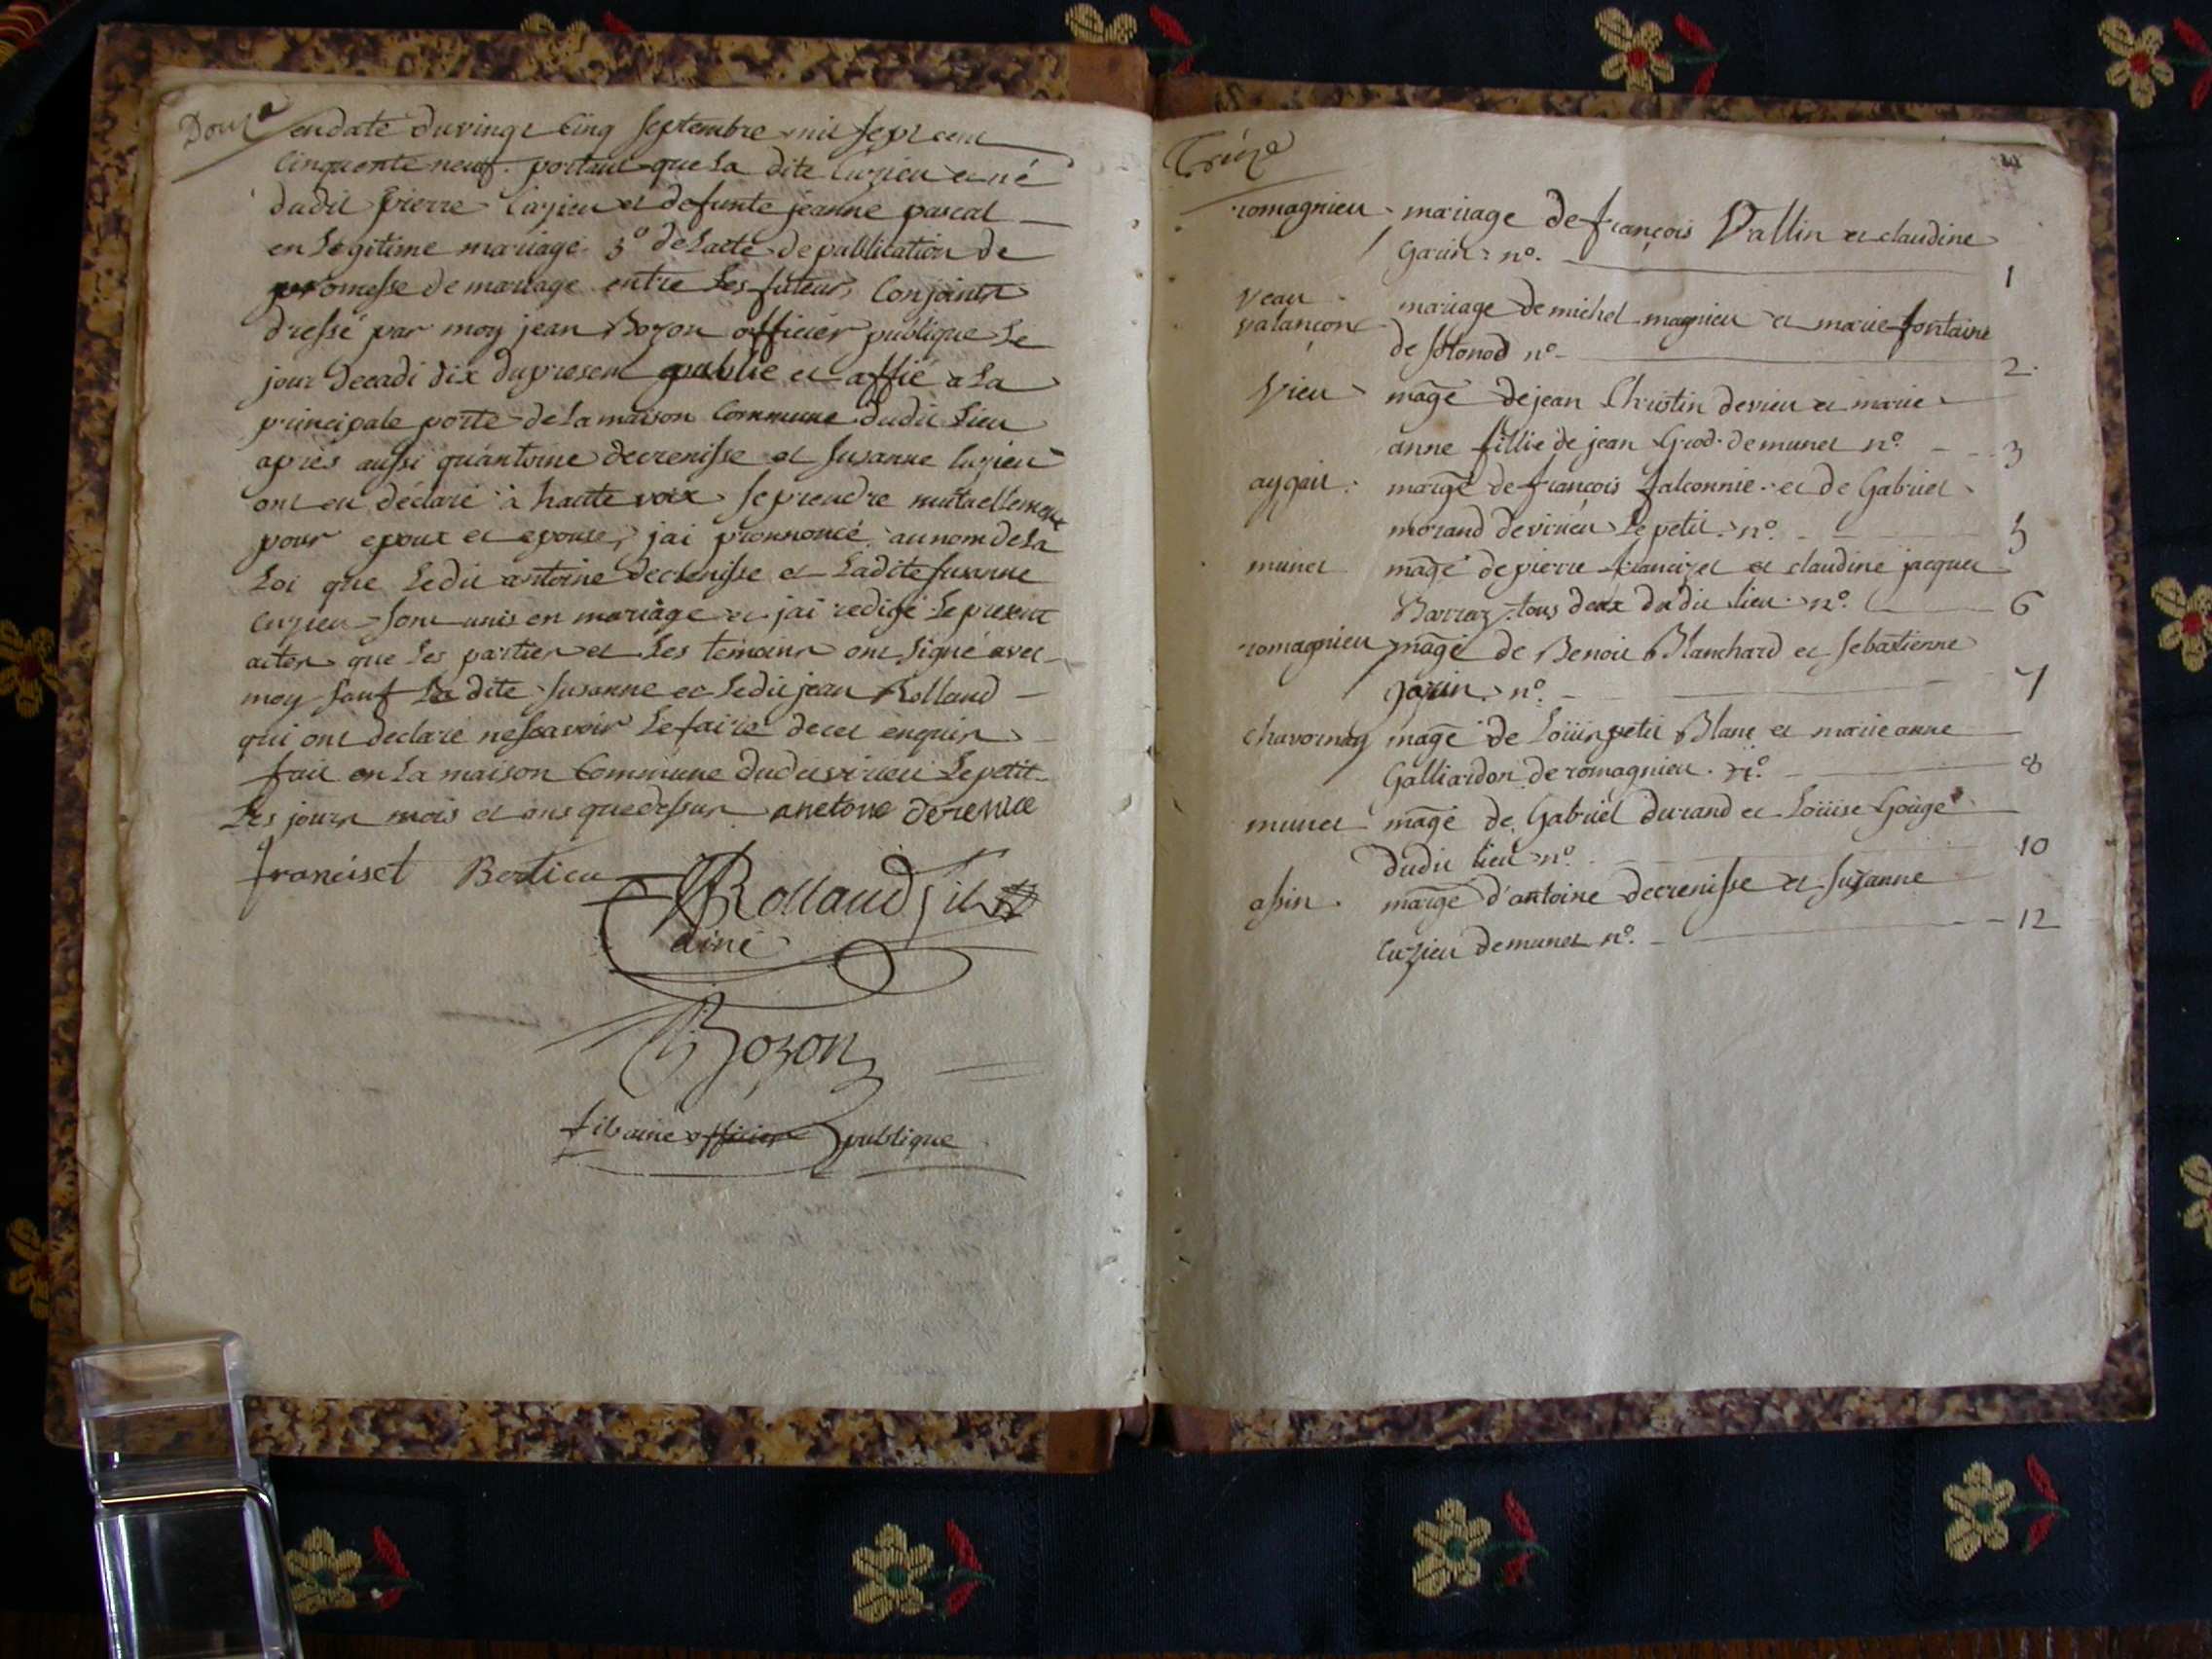 Douze
en date du vingt cinq septembre mil sept cent
cinquante neuf. portant que la dite Cuzieu et né
dudit pierre Cuzieu et defunte jeanne pascal
en legitime mariage 3° de lacte de publication de
promesse de mariage entre les futeurs Conjoints
dressé par moy jean Bozon officier publique le
jour decadi dix du present publié et affié a la
principale porte de la maison Commune dudit lieu
apres aussi qu'antoine decrenisse et susanne Cuzieu
ont eu déclaré à haute voix se prendre mutuellement
pour epoux et epouse, jai pronnoncé au nom de la
Loi que ledit antoine decrenisse et Ladite susanne
Cuzieu sont unis en mariage et jai redigé le present
acter que les parties et les témoins ont signé avec
moy sauf la dite susanne et ledit jean Rolland
qui ont declaré ne scavoir le faire de ce enquis
fait en la maison Commune dudit virieu le petit
les jours mois et ans que dessus anetone derenice
franciset Bertieu
Rolland fils
ainé
Bozon
fils ainé officier publique
Treize
romagnieu mariage de françois Vallin et claudine
Garin n°. 1
Veau mariage de michel magnieu et marie fontaine
valançone
de sotonod n° 2.
Vieu mage de jean Christin de vieu et marie
anne fillie de jean Grod de munet n°. 3
aygait. marge de françois falconnie et de Gabriel
morand de virieu le petit n°. 5
munet mage de pierre francizet et claudine jacquet
Barraz tous deux dudit lieu n°. 6
romagnieu mage de Benoit Blanchard et sebastienne
Garin n°. 7
chavornay mage de Loüis petit Blanc et marie anne
Galliardon de romagnieu. n°. 8
munet mage de Gabriel durand et Loüise Gouge
dudit lieu n°. 10
assin. marge d'antoine decrenisse et suzanne
Cuzieu de munet n°. 12